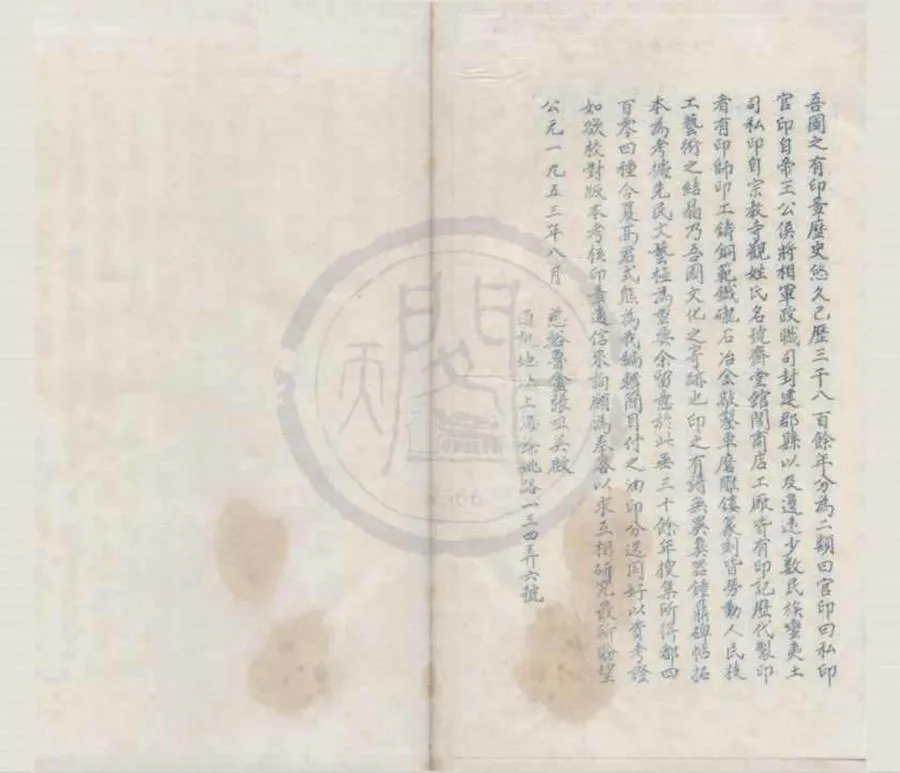 吾國之有印章歷史悠久已歷三千八百餘年分為二類曰官印曰私印
官印自帝王公侯將相軍政職司封建郡縣以及邊遠少數民族蠻夷土
司私印自宗教寺觀姓氏名號齋堂館閣商店工廠皆有印記歷代製印
者有印師印工鑄銅範鐵礎石冶金敲鏨車磨雕鏤篆刻皆勞動人民技
工藝術之結晶乃吾國文化之奇跡也印之有譜無異彝器鐘鼎碑帖拓
本為考據先民文藝極為重要余留意於此垂三十餘年搜集所得都四
百零四種今夏高君式熊為我編輯簡目付之油印分送同好以資考證
如欲校對版本考核印章通信來詢願為奉答以求互相研究最所盼望
公元一九五三年八月 慈谿魯盦張咀英跋
通訊地址上海餘姚路一三四弄六號
閣
天
1566